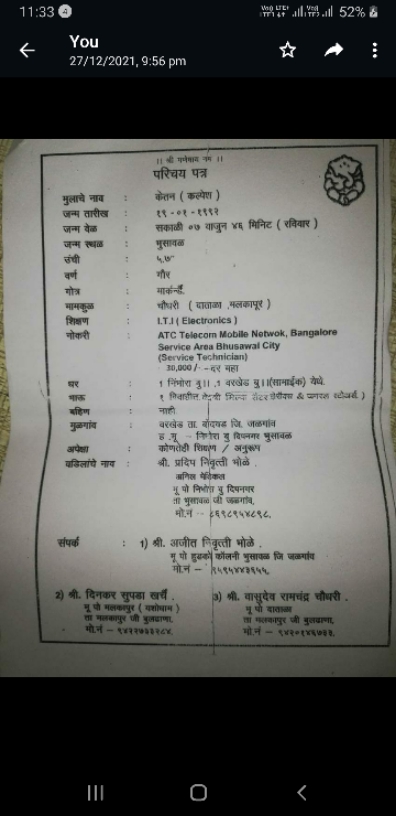 11:33
52%
You
27/12/2021, 9:56 pm
।। श्री गणेशाय नम ।।
परिचय पत्र
मुलाचे नाव : केतन ( कल्पेश )
जन्म तारीख : १९ -०१ -१९९२
जन्म वेळ : सकाळी ०७ वाजुन ४६ मिनिट ( रविवार )
जन्म स्थळ : भुसावळ
उंची : ५.७"
वर्ण : गौर
गोत्र :
मामकुळ : चौधरी ( दाताळा ,मलकापूर )
शिक्षण : I.T.I ( Electronics )
नोकरी : ATC Telecom Mobile Netwok, Bangalore
Service Area Bhusawal City
(Service Technician)
30,000/- - दर महा
घर : १ निंभोरा बु ।। ,१ वरखेड बु ।।(सामाईक) येथे.
भाऊ : १
बहिण : नाही
मुळगांव : वरखेड ता. बोदवड जि. जळगांव
ह .मू - निंभोरा बु दिपनगर भुसावळ
अपेक्षा : कोणतेही शिक्षण / अनुरूप
वडिलांचे नाव : श्री. प्रदिप निवृत्ती भोळे .
अनिल
मू पो निंभोरा बु दिपनगर
ता भुसावळ जी जळगांव,
मो.नं -- ८६९८९५४८९८.
संपर्क : 1) श्री. अजीत निवृत्ती भोळे .
मू पो हुडको कॉलनी भुसावळ जि जळगांव
मो.नं -
2) श्री. दिनकर सुपडा खर्चे . 3) श्री. वासुदेव रामचंद्र चौधरी .
मू पो मलकापुर ( यशोधाम ) मू पो दाताळा
ता मलकापुर जी बुलढाणा, ता मलकापुर जी बुलढाणा,
मो.नं - ९४२२७३३२८४ मो.नं - ९४२०१४६७३२.